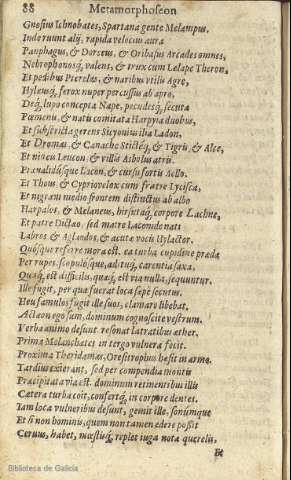 88 Metamorphoseon
Gnosius Ichnobates, Spartana gente Melampus.
Inde ruunt alij, rapida velocius aura
Pamphagus, & Dorceus, & Oribasus Arcades omnes,
Nebrophonosq́; valens, & trux cum Lelape Theron,
Et pedibus Pterelas, & naribus vtilis Agre,
Hylæusq́; ferox nuper percussus ab apro,
Deq́; lupo concepta Nape, pecudesq́; secuta
Pœmenis, & natis comitata Harpyia duobus,
Et substricta gerens Sicyonius ilia Ladon,
Et Dromas, & Canache Sticteq́; & Tigris, & Alce,
Et niueis Leucon, & villis Asbolus atris.
Præualidusque Lacon, & cursu fortis Aello.
Et Thous, & Cyprio velox cum fratre Lycisca,
Et nigram medio frontem distinctus ab albo
Harpalus, & Melaneus, hirsutaq́; corpore Lachne,
Et patre Dictæo, sed matre Laconide nati
Labros & Aglaudos, & acutæ vocis Hylactor.
Quósque referre mora est. ea turba cupidine prædæ
Per rupes, scopulósque, adituq́; carentia saxa,
Quaq́; est difficilis, quaq́; est via nulla, sequuntur.
Ille fugit, per quæ fuerat loca sæpè secutus.
Heu famulos fugit ille suos, clamare libebat,
Actæon ego sum, dominum cognoscite vestrum.
Verba animo desunt resonat latratibus æther.
Prima Melanchætes in tergo vulnera fecit.
Proxima Theridamas, Oresitrophus hæsit in armo.
Tardius exierant, sed per compendia montis
Præcipitata via est. dominum retinentibus illis
Cætera turba coit, confertq́; in corpore dentes.
Iam loca vulneribus desunt, gemit ille, sonumque
Et si non hominis, quem non tamen edere possit
Ceruus, habet, mœstisq́; replet iuga nota querelis,
Et
Biblioteca de Galicia